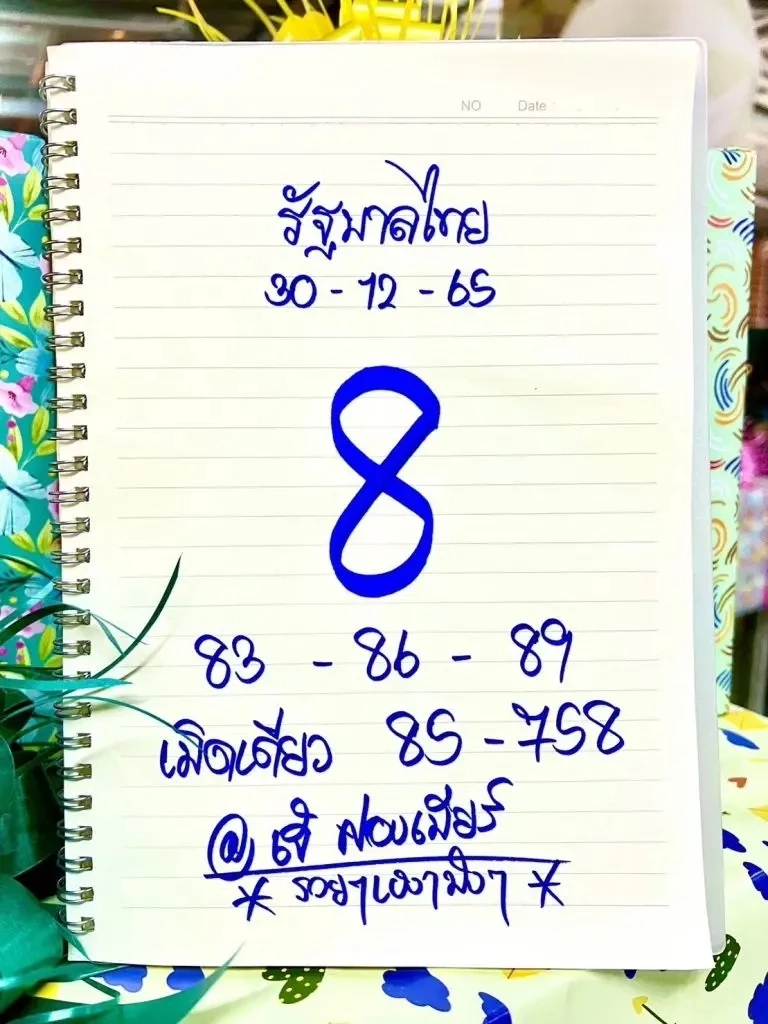 NO Date
รัฐบาลไทย
30 - 12 - 65
8
83 - 86 - 89
เม็ดเดียว 85 - 758
@ เจ๊ ฟองเบียร์
* รวยๆเฮงๆปังๆ *